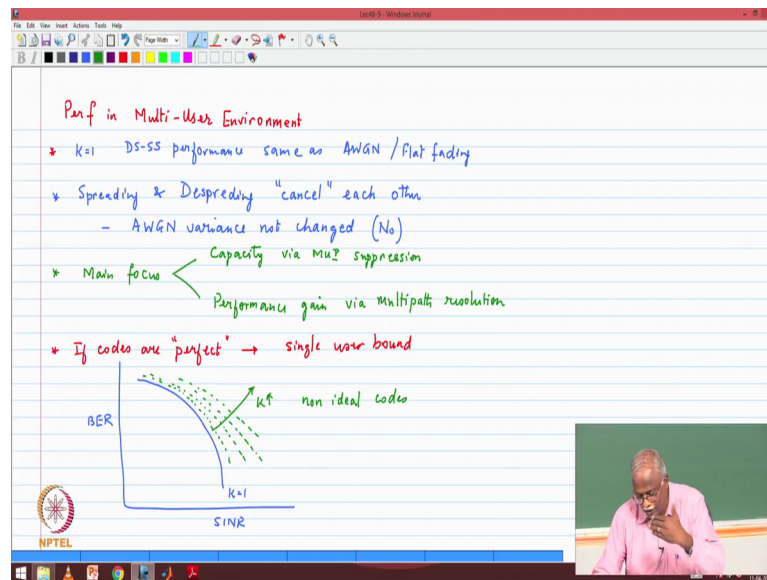 Lec40-9 - Windows Journal
File Edit View Insert Actions Tools Help
Page Width
B I
Perf in Multi-User Environment
* K=1 DS-SS performance same as AWGN / Flat fading
* Spreading & Despreding "cancel" each other
- AWGN variance not changed (No)
* Main focus
Capacity via MUI suppression
Performance gain via multipath resolution
* If codes are "perfect" → single user bound
K↑ non ideal codes
BER
K=1
SINR
NPTEL